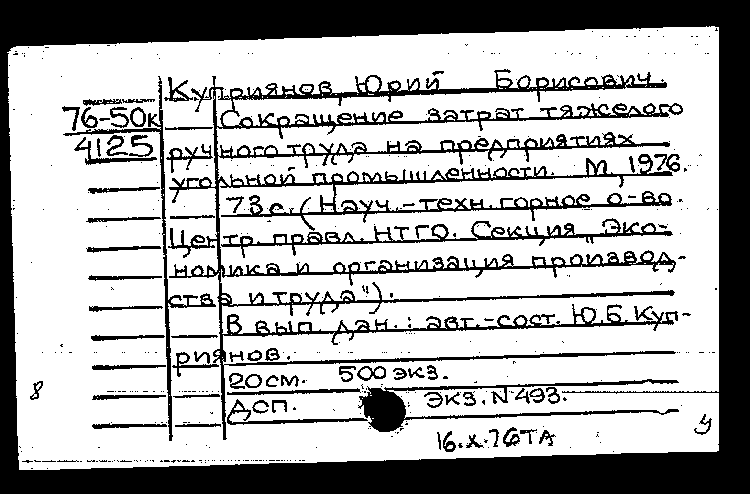 Куприянов, Юрий Борисович.
76-50к Сокращение затрат тяжелого
4125 ручного труда на предприятиях
угольной промышленности. М, 1976.
73 с. (Науч.-техн. горное о-во.
Центр. правл. НТГО. Секция „Эко-
номика и организация производ-
ства и труда").
В вып. дан.: авт.-сост. Ю.Б. Куп-
риянов.
20см. 500 экз.
8 ДСП. Экз. N 493.
16.X.76ТА У